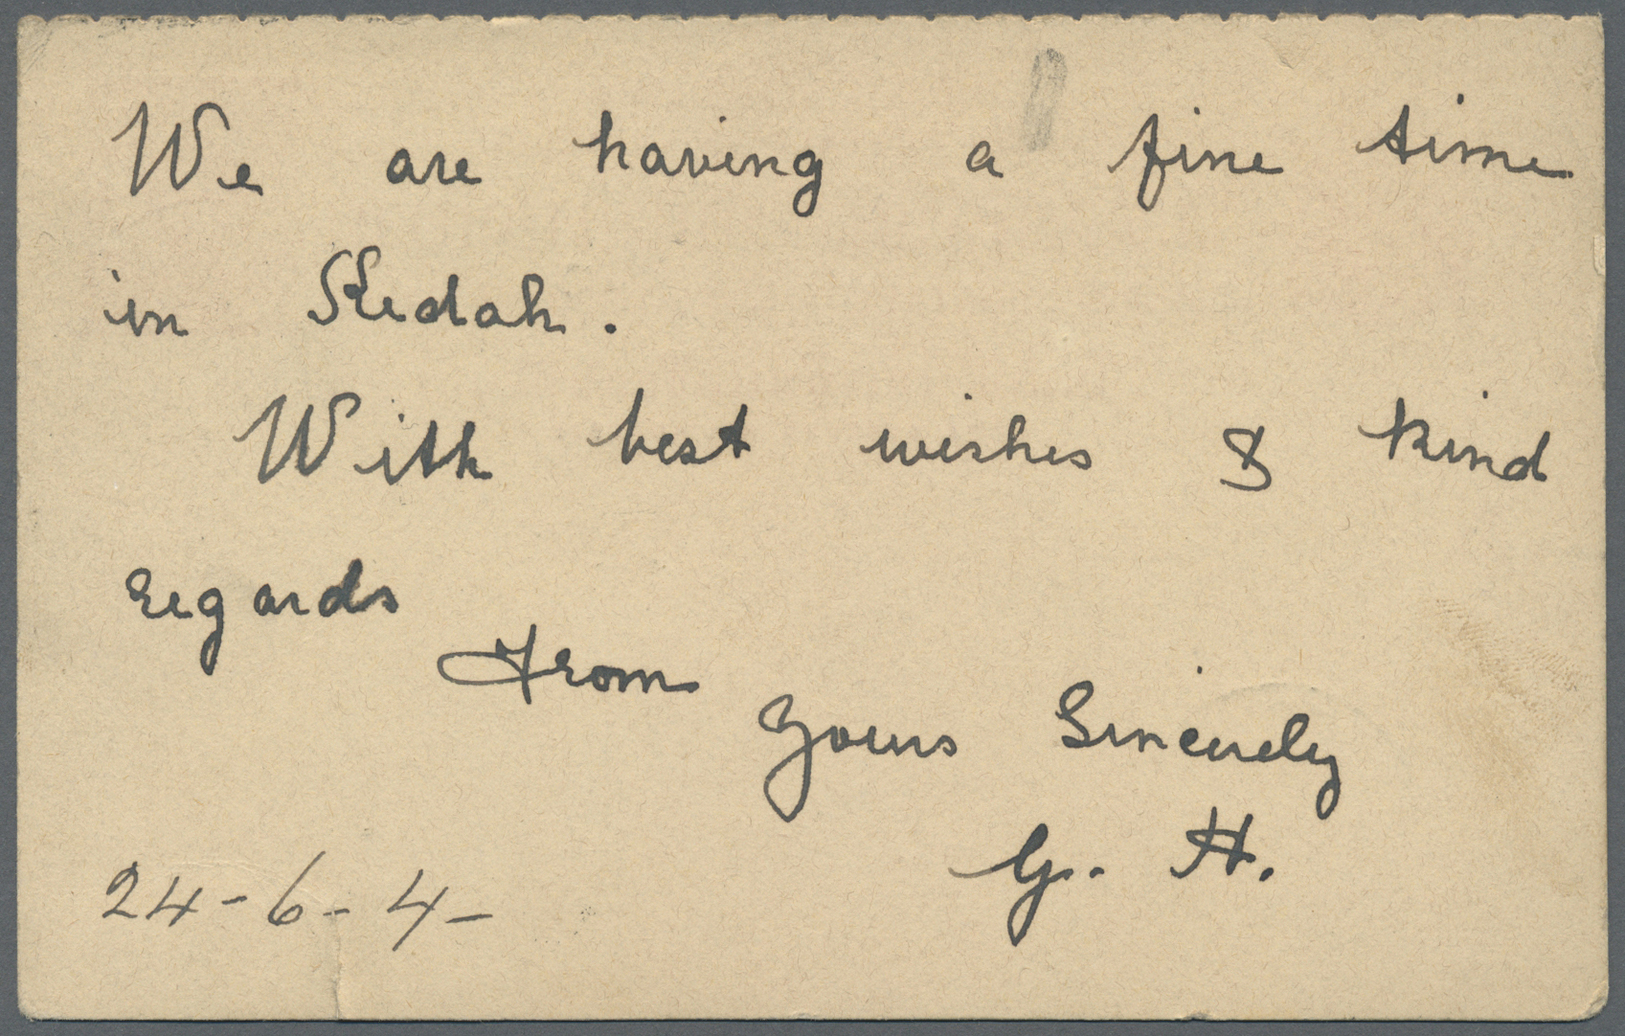 We are having a fine time
in Kedah.
With best wishes & kind
regards
From
Yours Sincerely
G. H.
24-6-4-